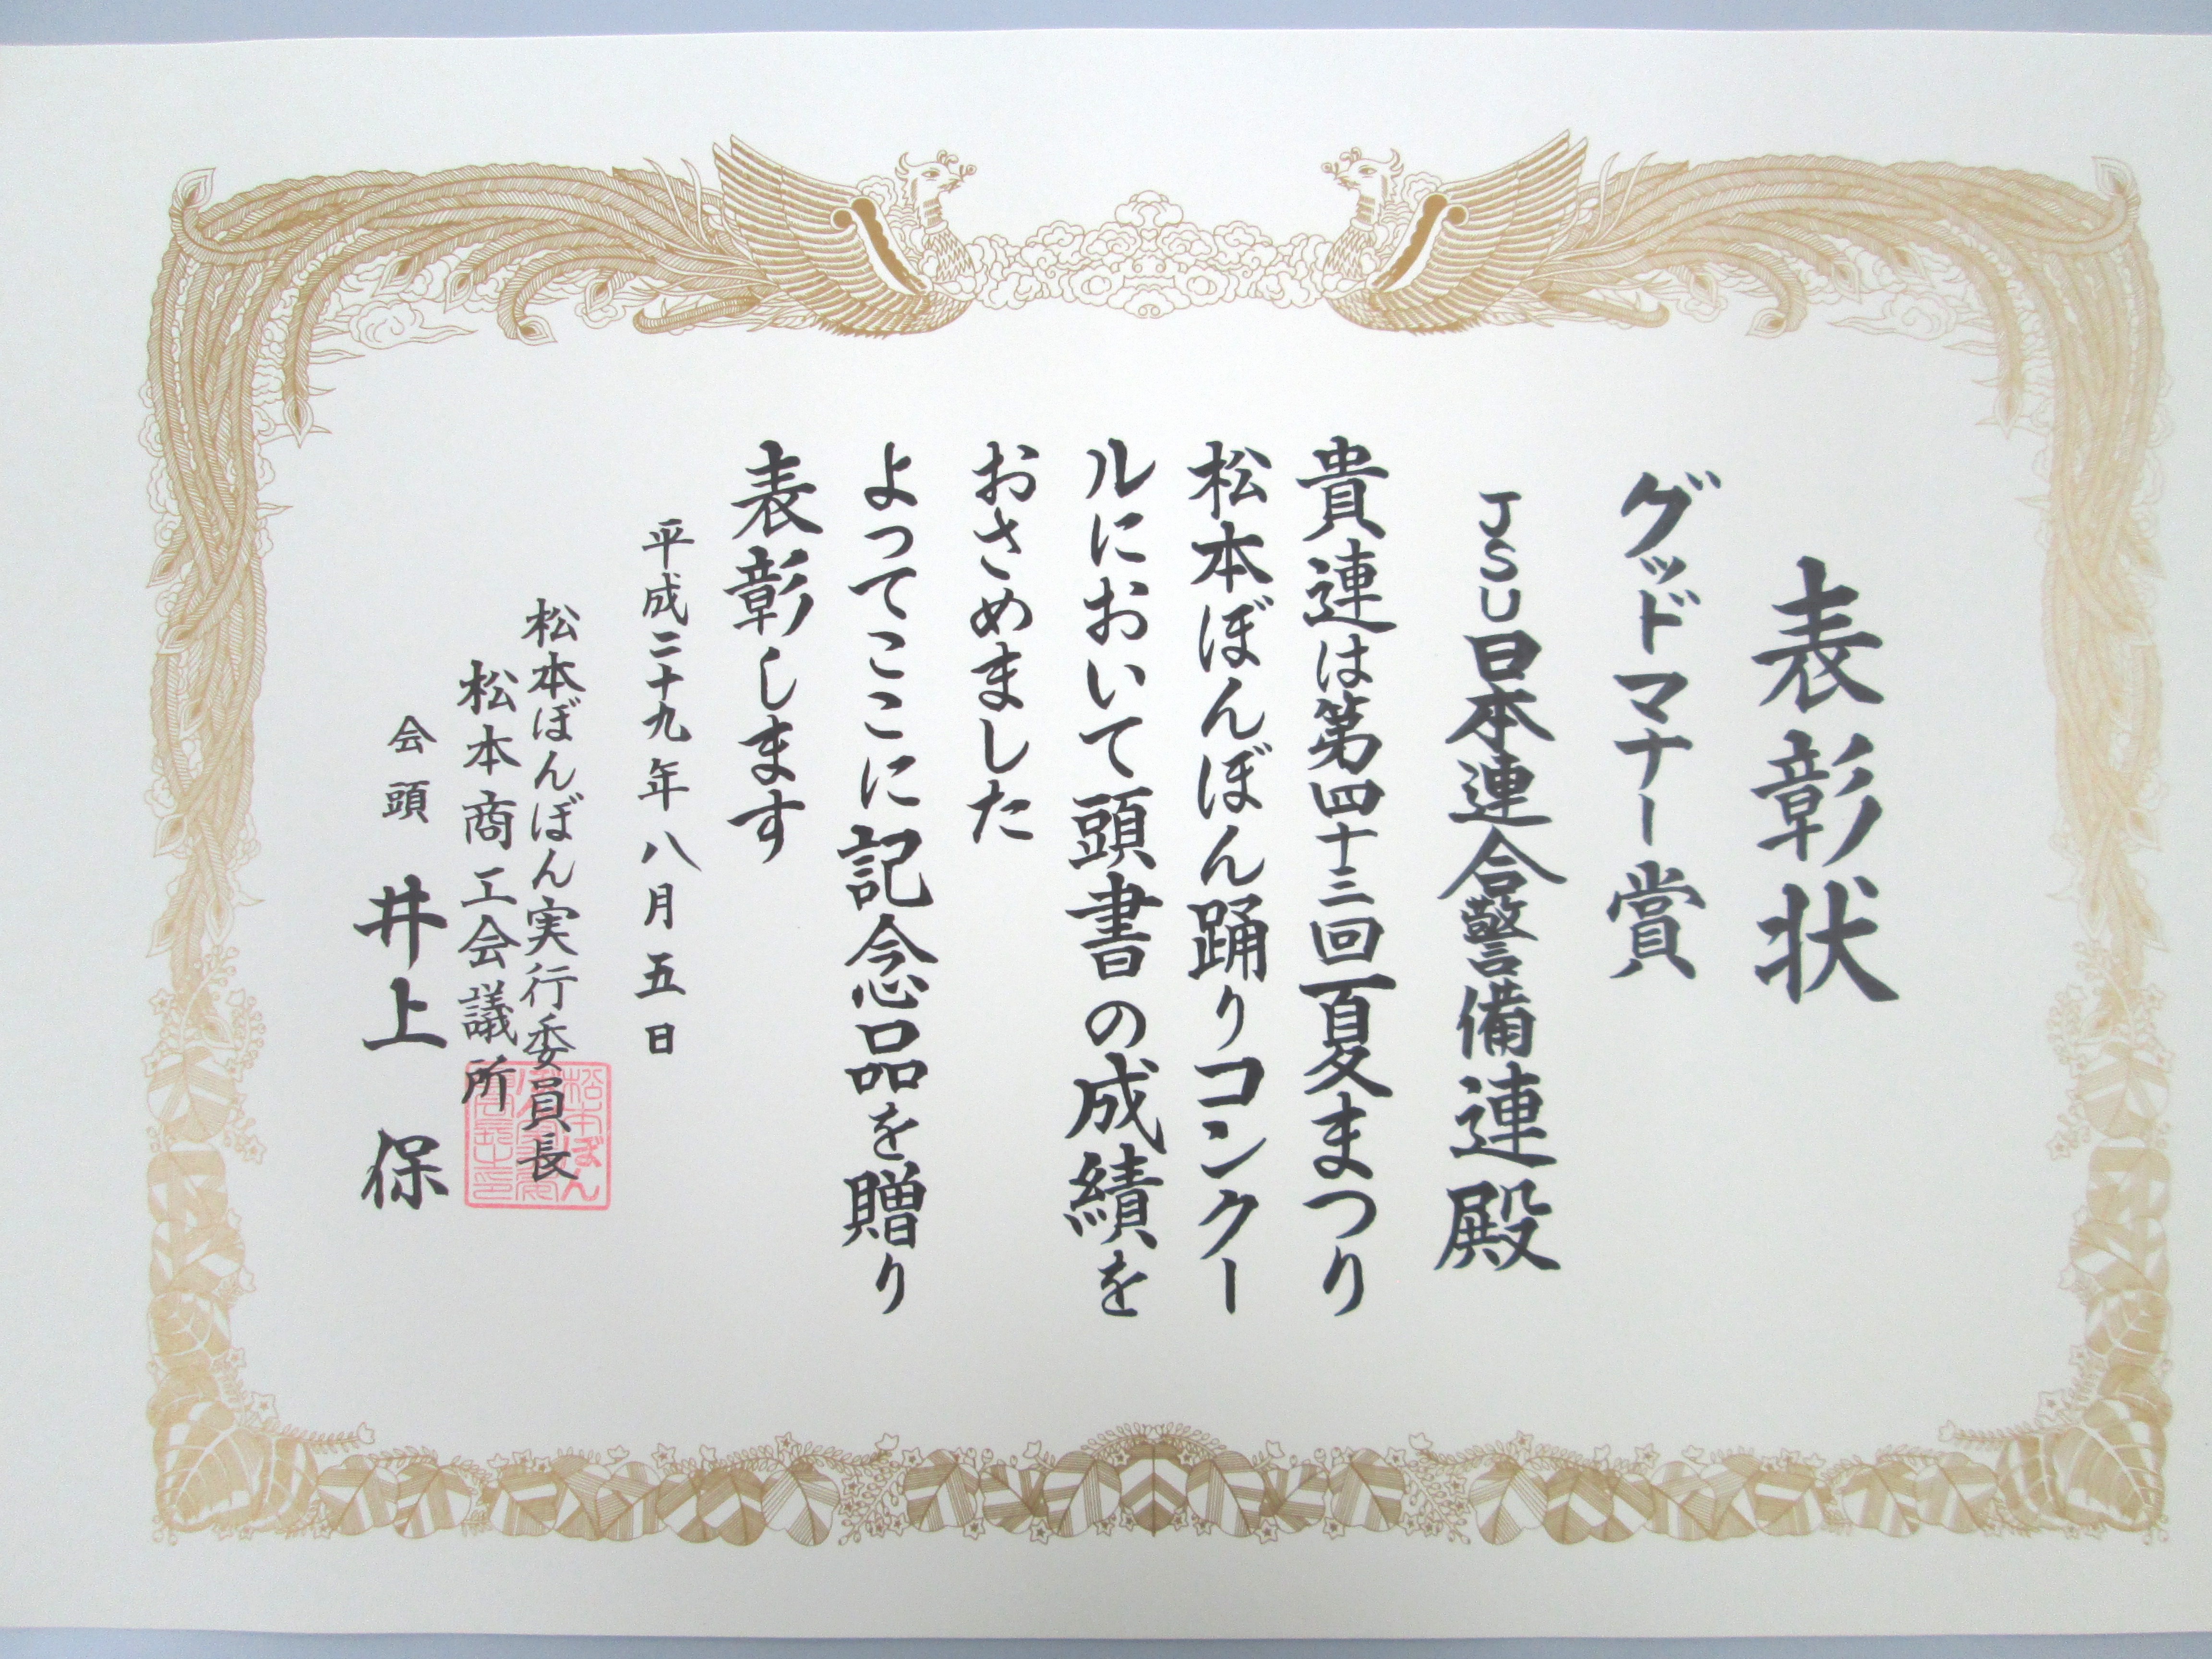 表彰状
グッドマナー賞
JSU日本連合警備連殿
貴連は第四十三回夏まつり
松本ぼんぼん踊りコンクー
ルにおいて頭書の成績を
おさめました
よってここに記念品を贈り
表彰します
平成二十九年八月五日
松本ぼんぼん実行委員長
松本商工会議所
会頭 井上保